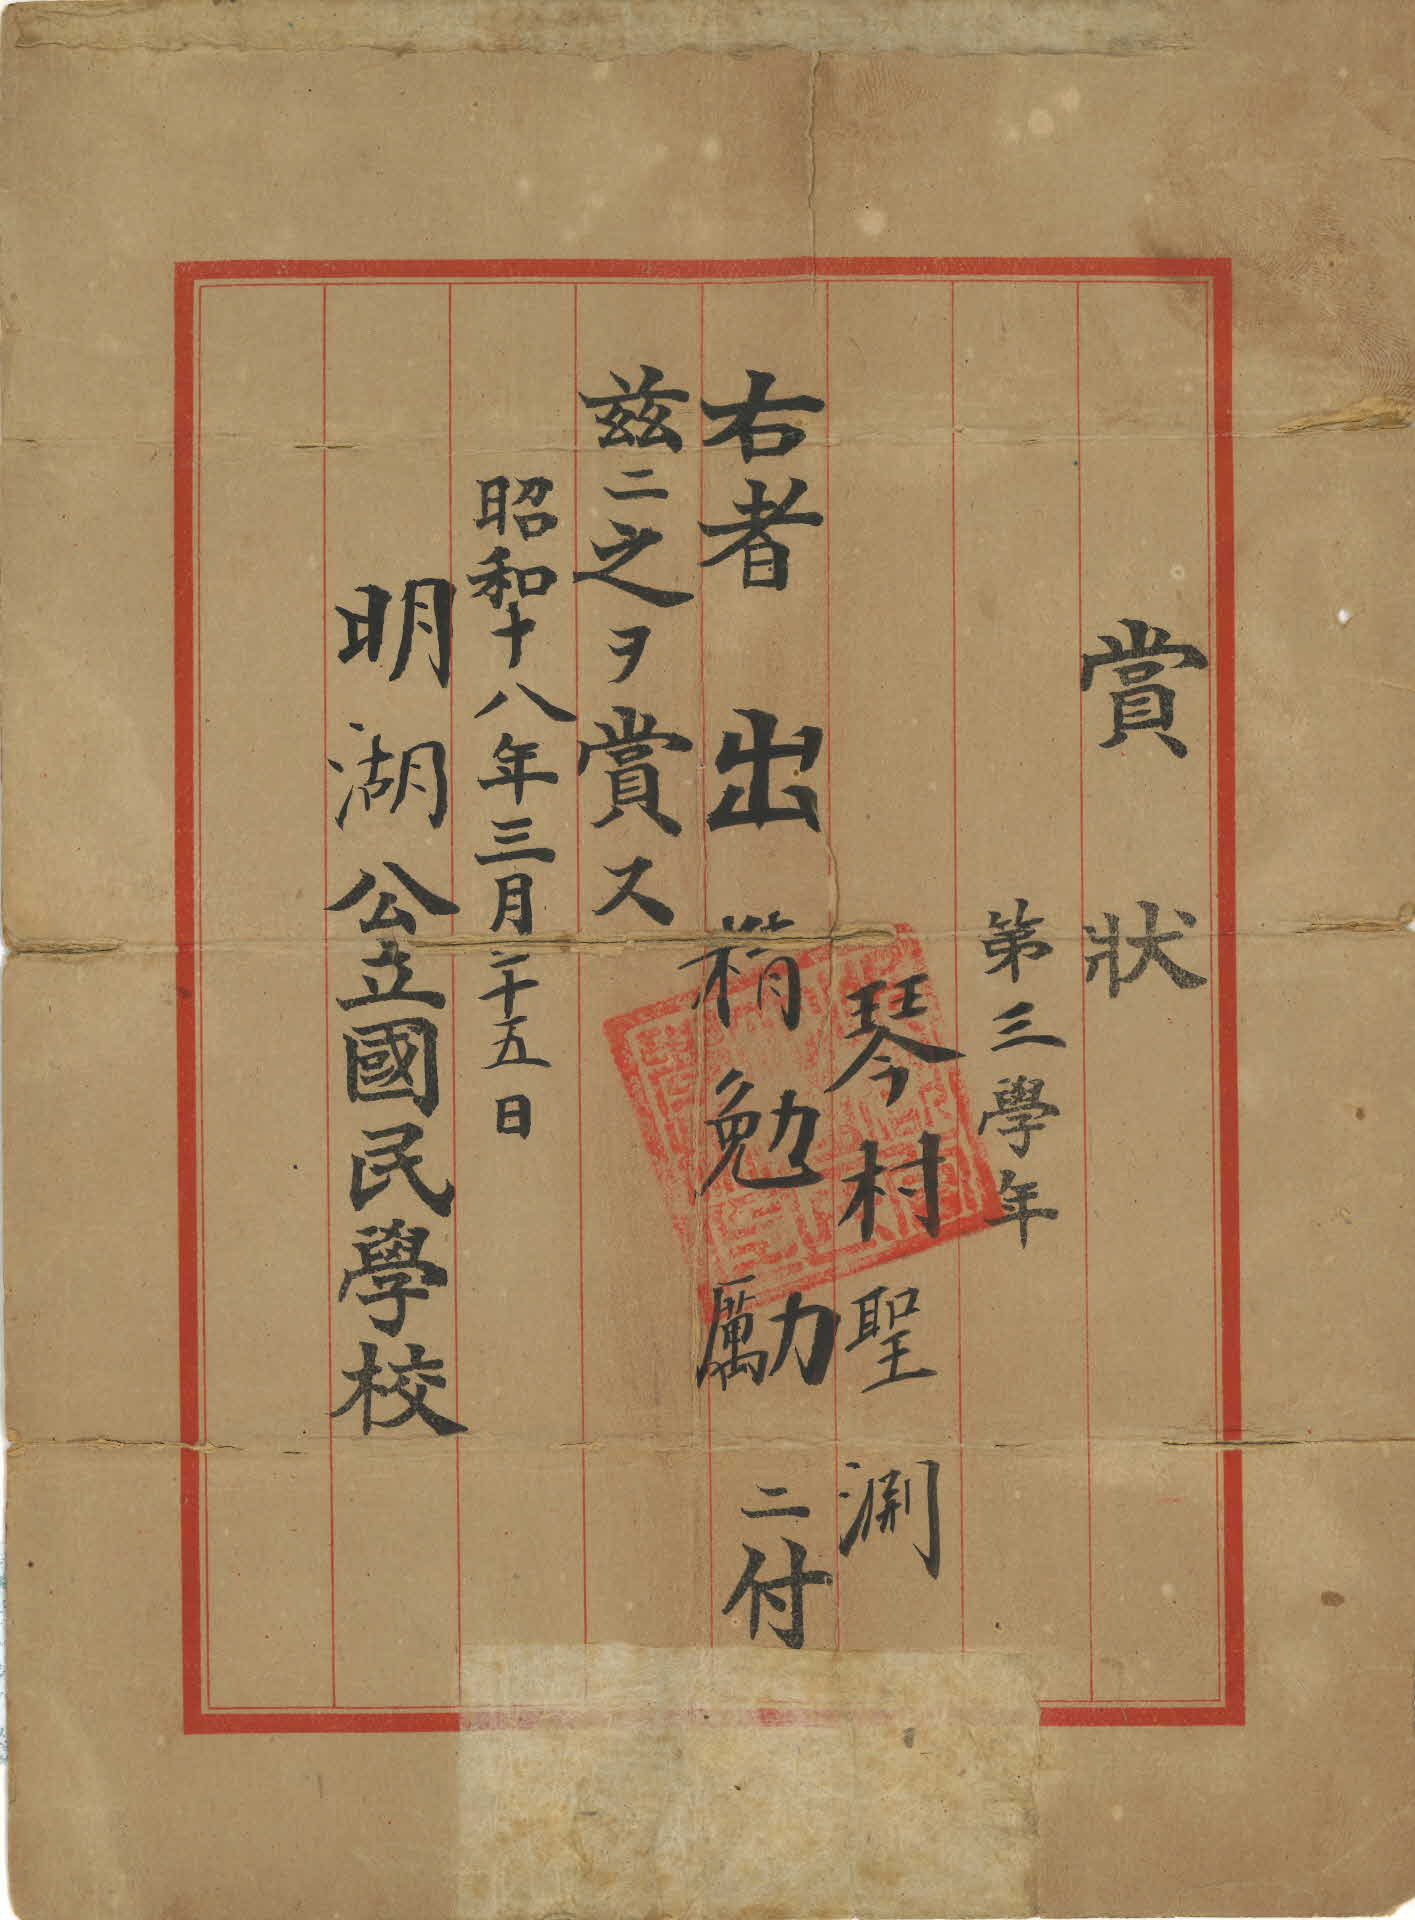 賞狀
第三學年
琴村聖渕
右者出精勉勵ニ付
茲ニ之ヲ賞ス
昭和十八年三月二十五日
明湖公立國民學校